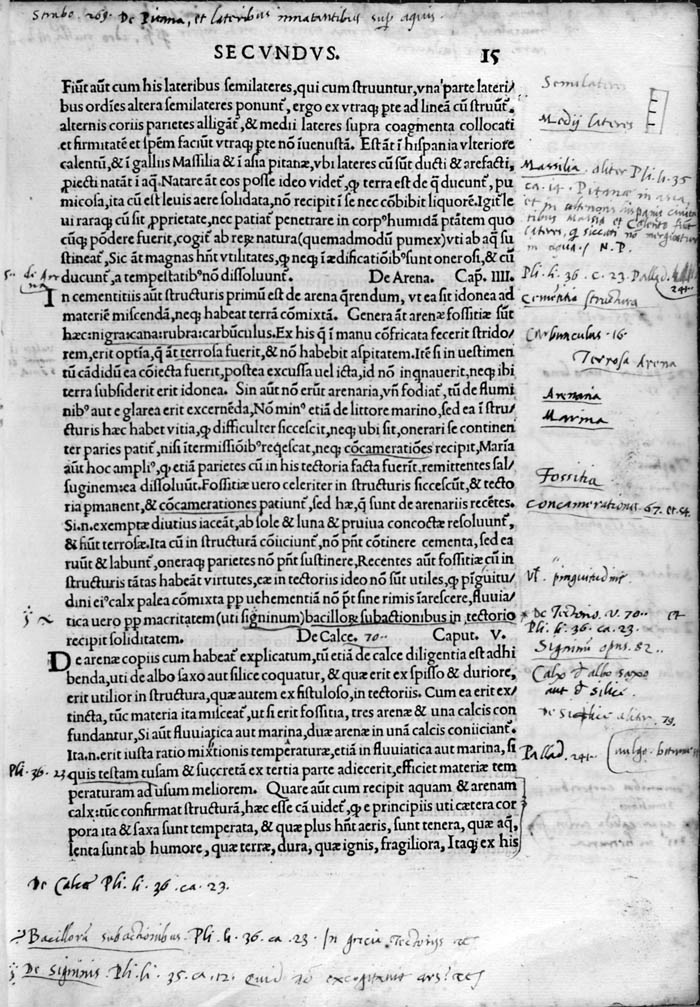 Strabo. 209. De Pitana, et lateribus innatantibus sup aquis.
SECVNDVS. 15
Fiũt aũt cum his lateribus semilateres, qui cum struuntur, vna parte lateri/
bus ordĩes altera semilateres ponunt᷑, ergo ex vtraq; pte ad lineã cũ struũt᷑.
alternis coriis parietes alligãt᷑, & medii lateres supra coagmenta collocati
et firmitatẽ et spẽm faciũt vtraq; pte nõ ĩuenustã. Est ãt ĩ hispania vlteriore
calentũ, & ĩ galliis Massilia & ĩ asia pitanæ, vbi lateres cũ sũt ducti & arefacti,
ꝓiecti natãt ĩ aq̃. Natare ãt eos posse ideo videt᷑, ꝙ terra est de q̃ ducunt᷑, pu
micosa, ita cũ est leuis aere solidata, nõ recipit ĩ se nec cõbibit liquorẽ. Igit᷑ le
ui raraq; cũ sit ꝓprietate, nec patiat᷑ penetrare in corpꝰ humidã ptãtem quo
cũq; põdere fuerit, cogit᷑ ab reꝝ natura (quemadmodũ pumex) vti ab aq̃ su
stineat᷑, Sic ãt magnas hñt vtilitates, ꝙ neq; ĩ ædificatiõibꝰ sunt onerosi, & cũ
ducunt᷑, a tempestatibꝰ nõ dissoluunt᷑. De Arena. Cap̃. IIII.
In cementitiis aũt structuris primũ est de arena q̃rendum, vt ea sit idonea ad
materiẽ miscendã, neq; habeat terrã cõmixtã. Genera ãt arenæ fossitiæ sũt
hæc: nigra: cana: rubra: carbũculus. Ex his q̃ ĩ manu cõfricata fecerit strido/
rem, erit optĩa, q̃ ãt terrosa fuerit, & nõ habebit aspitatem. Itẽ si in uestimen
tũ cãdidũ ea cõiecta fuerit, postea excussa uel icta, id nõ inqnauerit, neq; ibi
terra subsiderit erit idonea. Sin aũt nõ erũt arenaria, vñ fodiat᷑, tũ de flumi
nibꝰ aut e glarea erit excernẽda, Nõ minꝰ etiã de littore marino, sed ea ĩ stru/
cturis hæc habet vitia, ꝙ difficulter siccescit, neq; ubi sit, onerari se continen
ter paries patit᷑, nisi ĩtermissiõibꝰ reqescat, neq; cõcameratiões recipit, Marĩa
aũt hoc ampliꝰ, ꝙ etiã parietes cũ in his tectoria facta fuerĩt, remittentes sal/
suginem: ea dissoluũt. Fossitiæ uero celeriter in structuris siccescũt, & tecto
ria pmanent, & cõcamerationes patiunt᷑, sed hæ, q̃ sunt de arenariis recẽtes.
Si. n. exemptæ diutius iaceãt, ab sole & luna & pruiua concoctæ resoluunt᷑,
& fiũt terrosæ. Ita cũ in structurã cõiiciunt᷑, nõ pñt cõtinere cementa, sed ea
ruũt & labunt᷑, oneraq; parietes nõ pñt sustinere, Recentes aũt fossitiæ cũ in
structuris tãtas habeãt virtutes, eæ in tectoriis ideo nõ sũt utiles, ꝙ pĩguitu/
dini eiꝰ calx palea cõmixta pp uehementiã nõ pt̃ sine rimis ĩarescere, fluuia/
tica uero pp macritatem (uti signinum) bacilloꝝ subactionibus in tectorio
recipit soliditatem. De Calce. 70.. Caput. V.
De arenæ copiis cum habeat᷑ explicatum, tũ etiã de calce diligentia est adhi
benda, uti de albo saxo aut silice coquatur, & quæ erit ex spisso & duriore,
erit utilior in structura, quæ autem ex fistuloso, in tectoriis. Cum ea erit ex/
tincta, tũc materia ita misceat᷑, ut si erit fossitia, tres arenæ & una calcis con
fundantur, Si aũt fluuiatica aut marina, duæ arenæ in unã calcis coniiciant᷑.
Ita. n. erit iusta ratio mixtionis temperaturæ, etiã in fluuiatica aut marina, si
quis testam tusam & succretã ex tertia parte adiecerit, efficiet materiæ tem
peraturam ad usum meliorem. Quare aũt cum recipit aquam & arenam
calx: tũc confirmat structurã, hæc esse cã uidet᷑, ꝙ e principiis uti cætera cor
pora ita & saxa sunt temperata, & quæ plus hñt aeris, sunt tenera, quæ aq̃,
lenta sunt ab humore, quæ terræ, dura, quæ ignis, fragiliora, Itaq; ex his
Semilateres
Medij lateres
Massilia. aliter Pli. li. 35
ca. 14. Pitanæ in asia,
Pli. li. 36. c. 23. Pallad.
Cementitia structura
Carbunculus. 16.
Terrosa Arena
Arenaria
Marina
Fossitia
Concamerationes. 67. et
Vt pinguitudini
De Tectorio. V. 70..
Pli. li. 36. ca. 23.
Signinũ opus. 82..
Calx de albo saxo
aut de silice.
79.
Pallad. 241.
Pli. 36. 23.
De Calce Pli. li. 36. ca. 23.
Bacilloꝝ subactionibus. Pli. li. 36. ca. 23. In grecia Tectorijs
De Signinis Pli. li. 35. ca. 12. Quid nõ excogitauit ars?